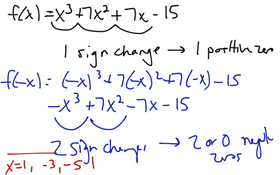 f(x)=x³+7x²+7x-15
1 sign change → 1 positive zero
f(-x)= (-x)³+7(-x)²+7(-x)-15
-x³+7x²-7x-15
2 sign changes → 2 or 0 negat
zeros
x=1, -3, -5